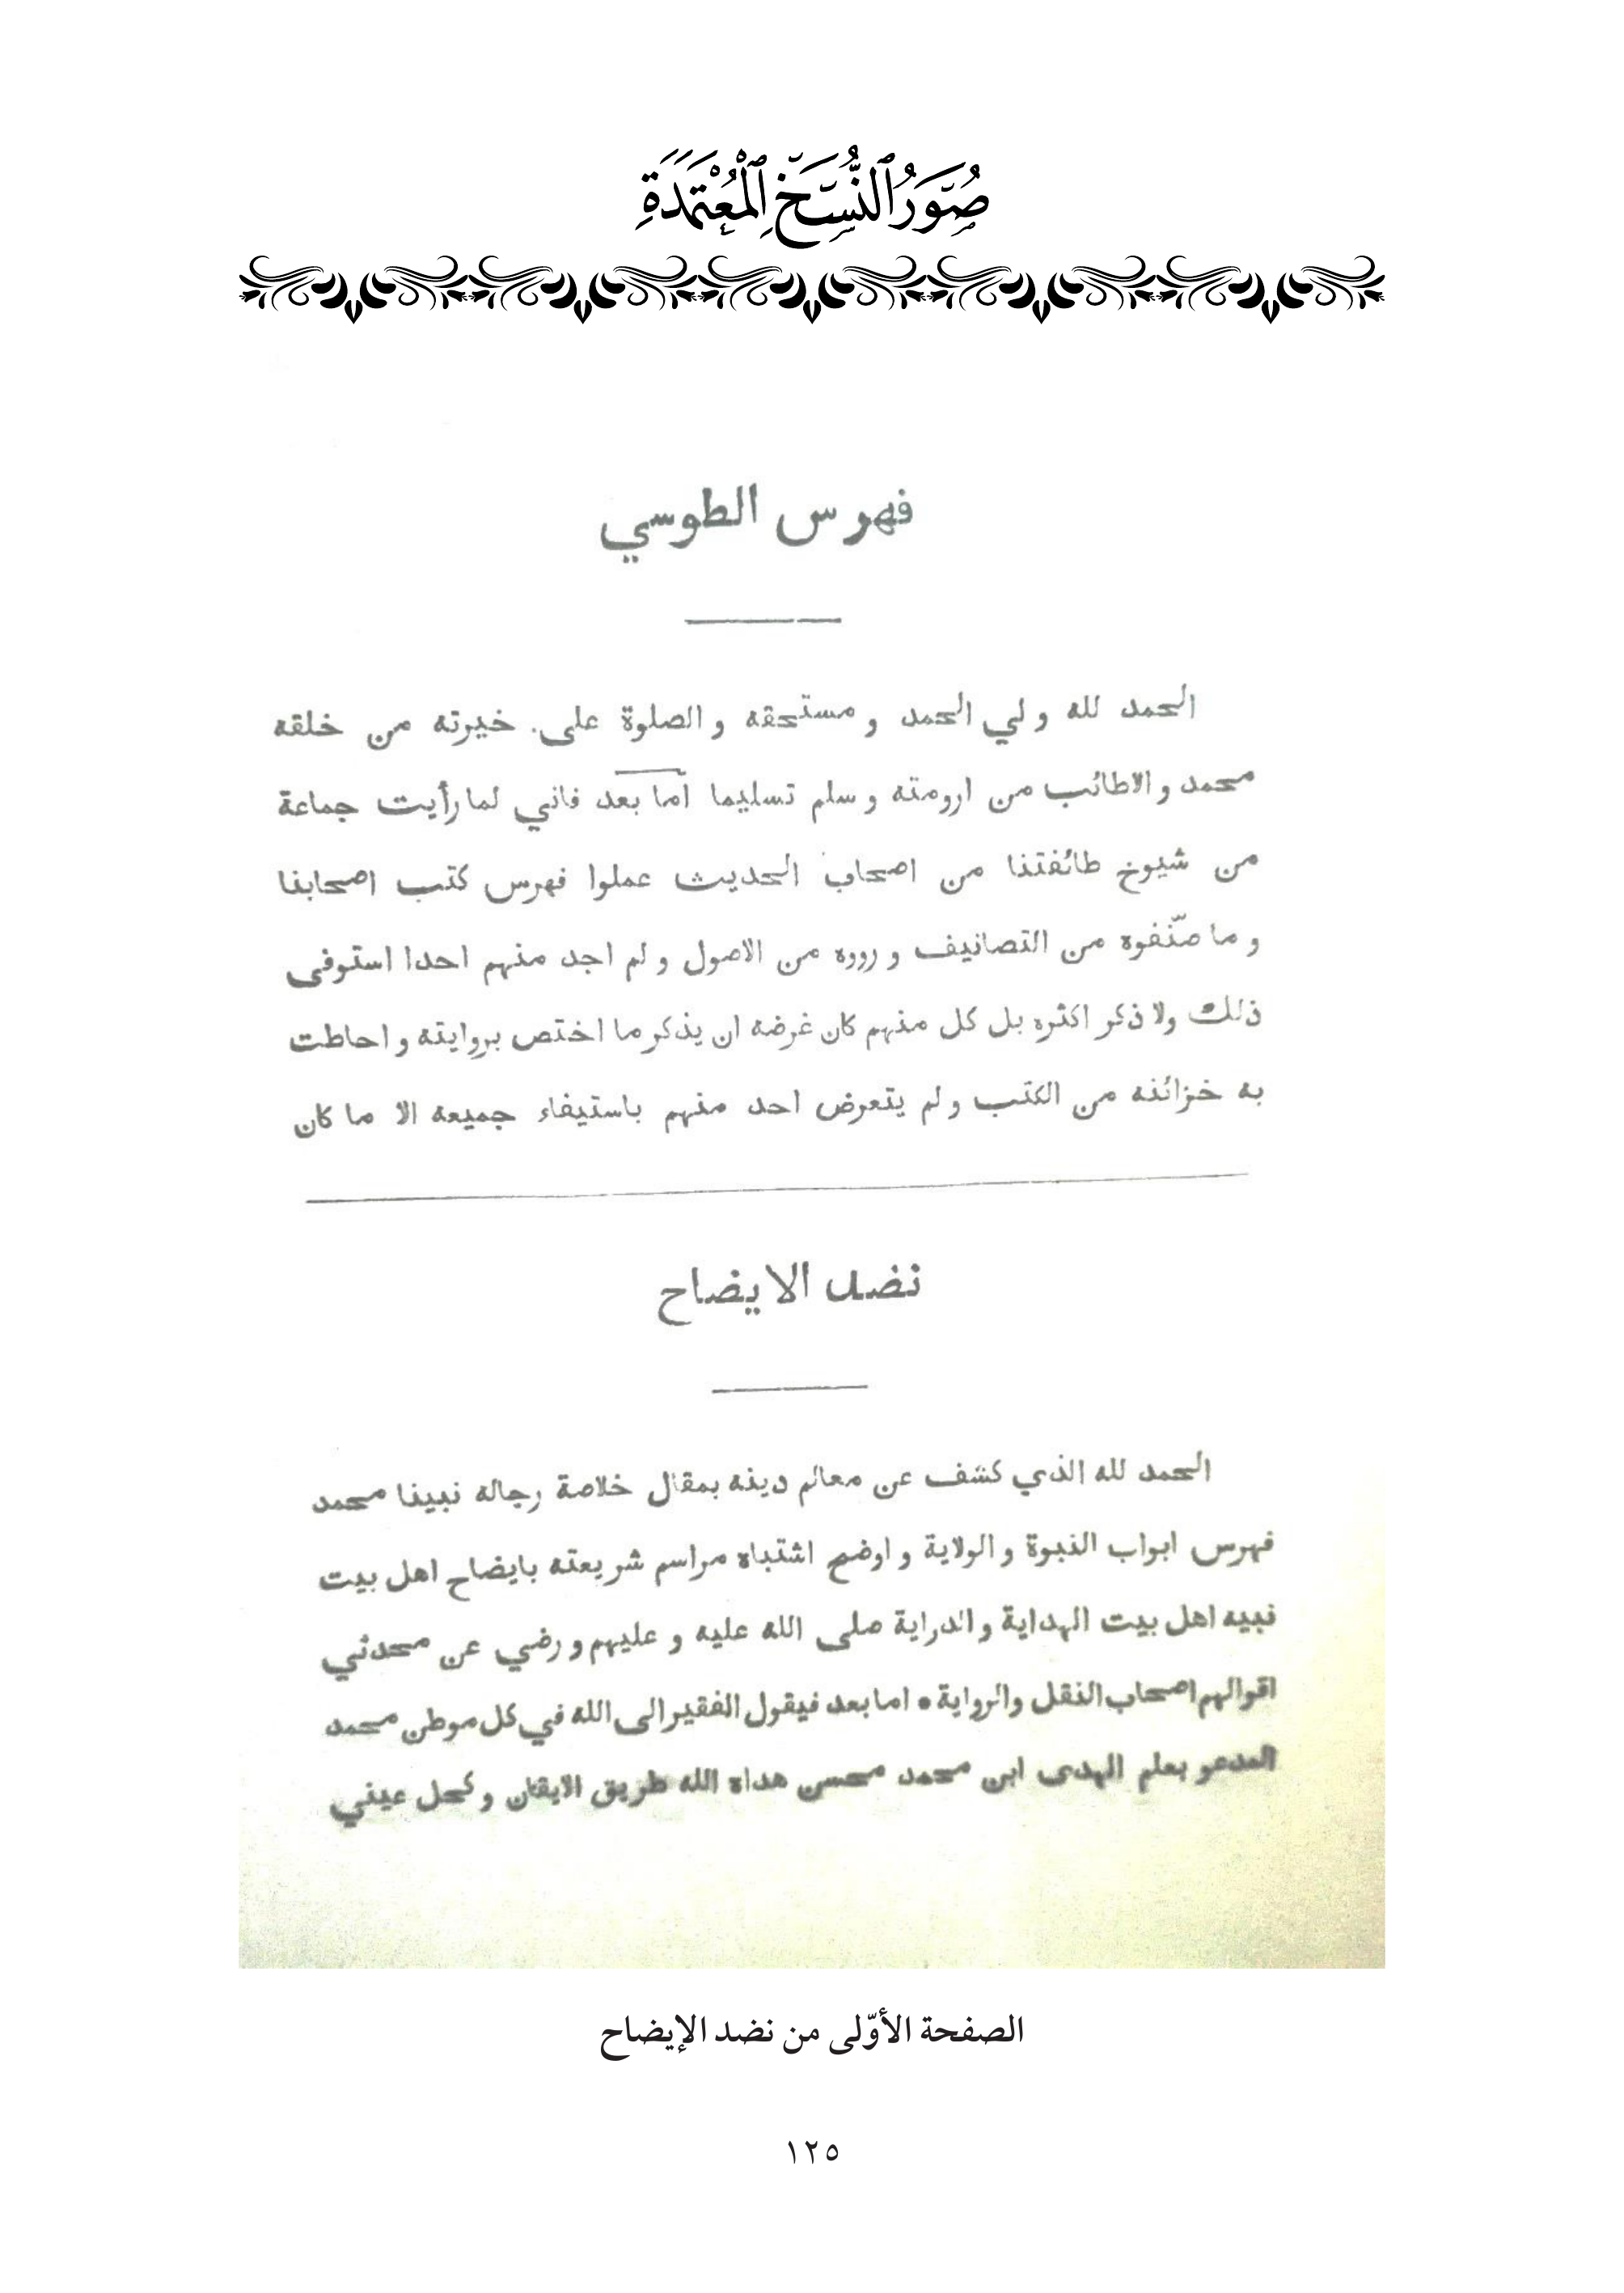 صُوَرُ النُّسَخِ الْمُعْتَمَدَةِ
فهرس الطوسي
الحمد لله ولي الحمد و مستحقه و الصلوة على خيرته من خلقه
محمد و الاطائب من ارومته و سلم تسليما اما بعد فاني لما رأيت جماعة
من شيوخ طائفتنا من اصحاب الحديث عملوا فهرس كتب اصحابنا
و ما صنّفوه من التصانيف و رووه من الاصول و لم اجد منهم احدا استوفى
ذلك ولا ذكر اكثره بل كل منهم كان غرضه ان يذكر ما اختص بروايته و احاطت
به خزائنه من الكتب و لم يتعرض احد منهم باستيفاء جميعه الا ما كان
نضد الايضاح
الحمد لله الذي كشف عن معالم دينه بمقال خلاصة رجاله نبينا محمد
فهرس ابواب النبوة و الولاية و اوضح اشتباه مراسم شريعته بايضاح اهل بيت
نبيه اهل بيت الهداية و الدراية صلى الله عليه و عليهم و رضي عن محدثي
اقوالهم اصحاب النقل والرواية • اما بعد فيقول الفقير الى الله في كل موطن محمد
المدعو بعلم الهدى ابن محمد محسن هداه الله طريق الايقان و كحل عيني
الصفحة الأوّلى من نضد الإيضاح
١٢٥